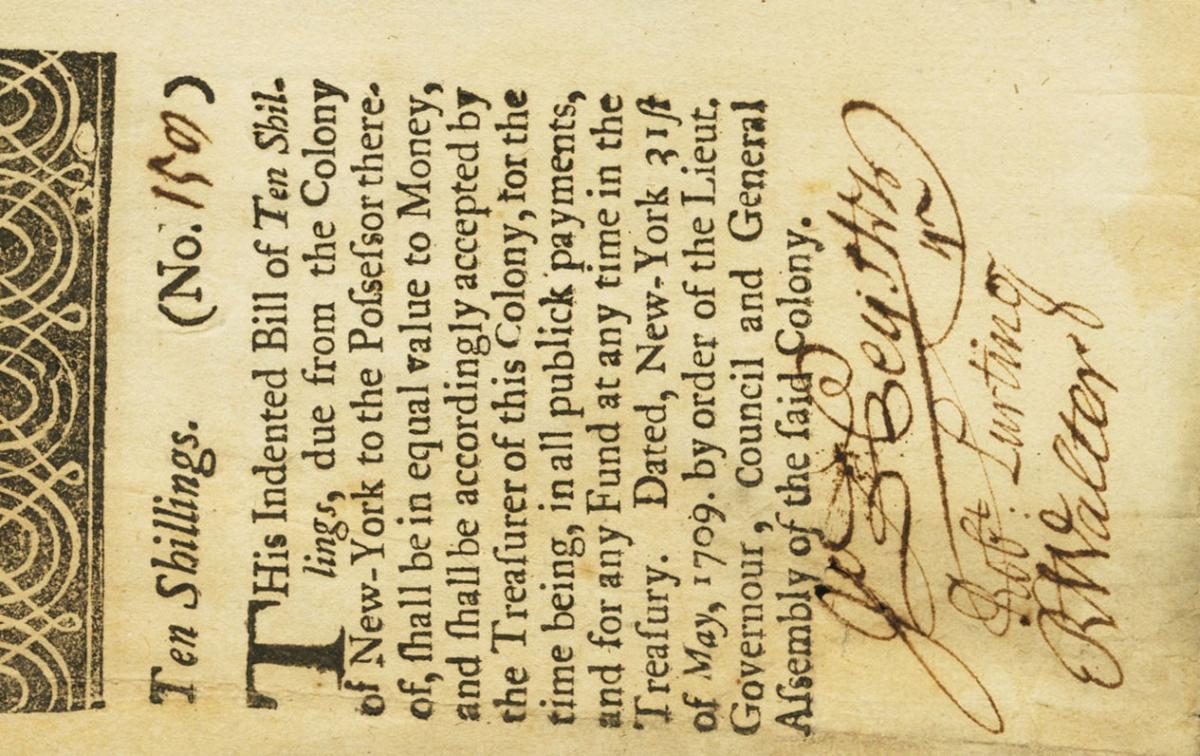 Ten Shillings. (No. 1509)
THis Indented Bill of Ten Shil-
lings, due from the Colony
of New-York to the Poſseſsor there-
of, ſhall be in equal value to Money,
and ſhall be accordingly accepted by
the Treaſurer of this Colony, for the
time being, in all publick payments,
and for any Fund at any time in the
Treaſury. Dated, New-York 31ſt
of May, 1709. by order of the Lieut.
Governour, Council and General
Aſsembly of the ſaid Colony.
Robt Lurting
R Walter